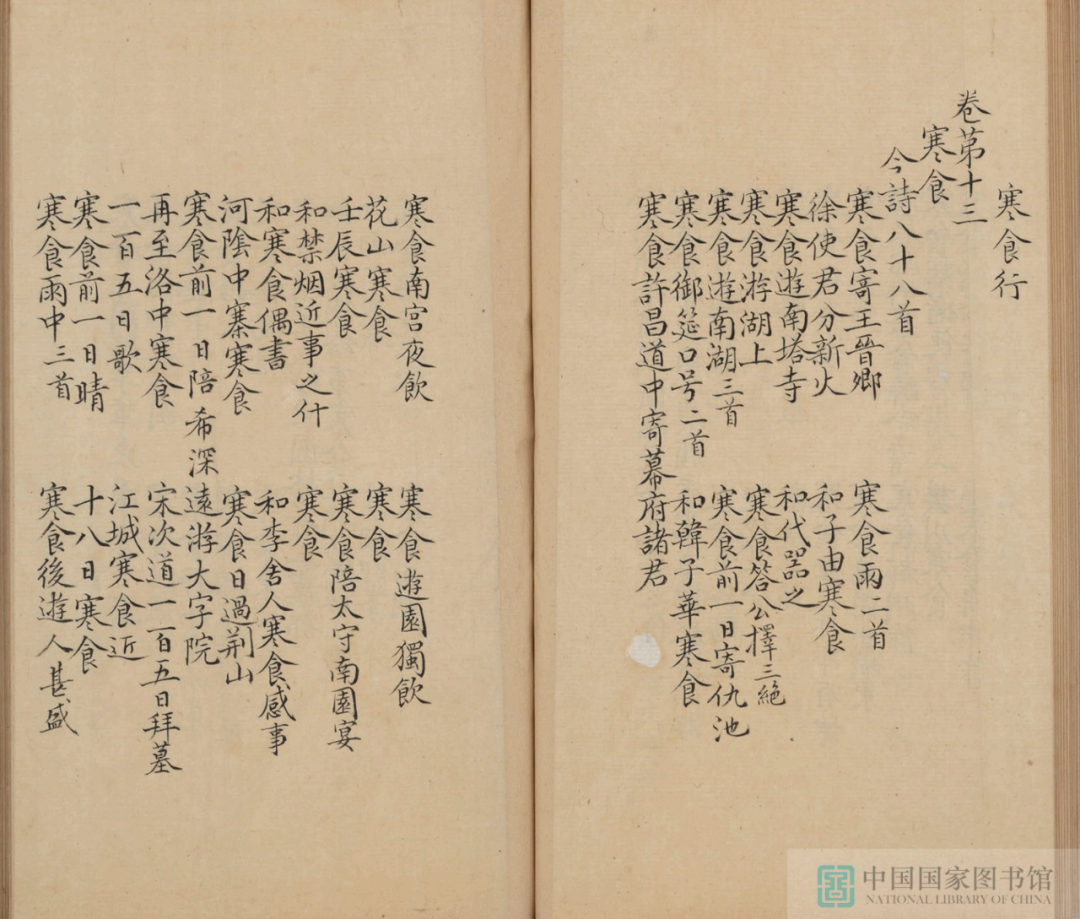 寒食行
卷第十三
寒食
今詩八十八首
寒食寄王晉卿 寒食雨二首
徐使君分新火 和子由寒食
寒食遊南塔寺 和代器之
寒食游湖上 寒食答公擇三絶
寒食遊南湖三首 寒食前一日寄仇池
寒食御筵口号二首 和韓子華寒食
寒食許昌道中寄幕府諸君
寒食南宮夜飲 寒食遊園獨飲
花山寒食 寒食
壬辰寒食 寒食陪太守南園宴
和禁烟近事之什 寒食
和寒食偶書 和李舍人寒食感事
河陰中寨寒食 寒食日過荆山
寒食前一日陪希深遠游大字院
再至洛中寒食 宋次道一百五日拜墓
一百五日歌 江城寒食近
寒食前一日晴 十八日寒食
寒食雨中三首 寒食後遊人甚盛
中国国家图书馆
NATIONAL LIBRARY OF CHINA